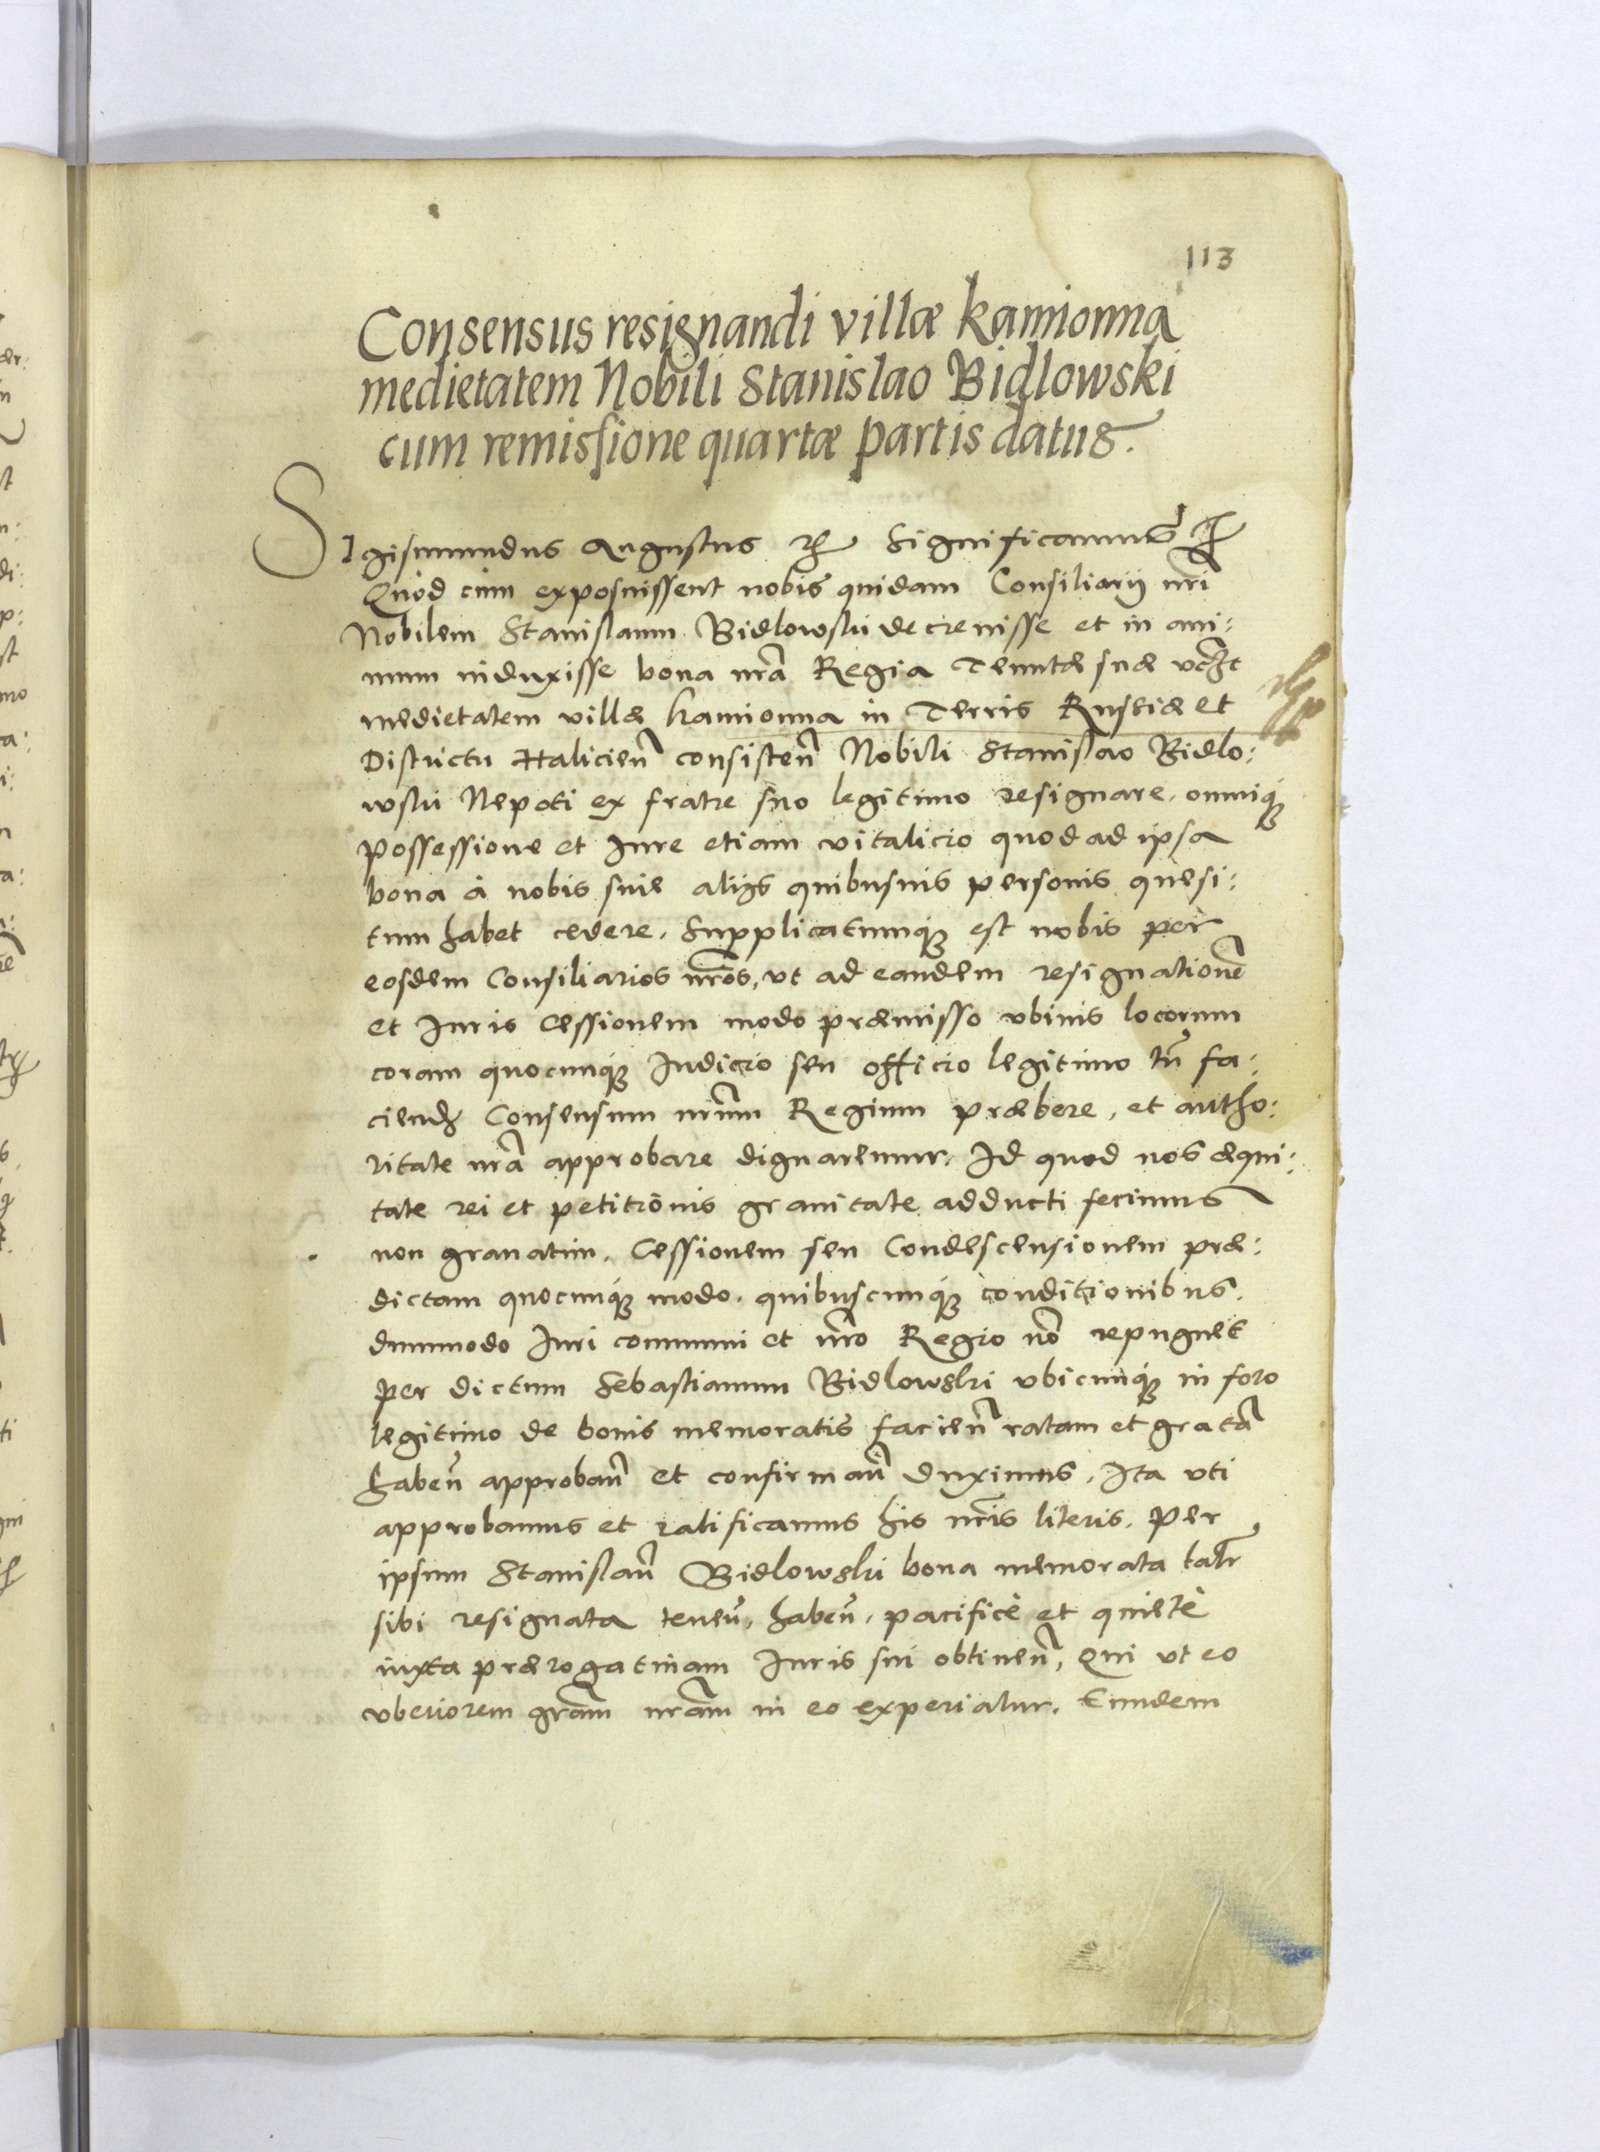 113
Consensus resignandi villæ Kamionna
medietatem Nobili Stanislao Bidlowski
cum remissione quartæ partis datus.
Sigismundus Augustus Significamus
Quód cùm exposuissent nobis quidam Consiliarij nr̃i
Nobilem Stanislaum Bidlowski decreuisse et in ani:
mum induxisse bona nr̃a Regia Tenutæ suæ vdzt
medietatem villæ Kamionna in Terris Russiæ et
Districtu Halicien̄ consisten̄ Nobili Stanislao Bidlo:
wski Nepoti ex fratre suo legitimo resignare, omniq́;
possessione et Iure etiam vitalicio quod ad ipsa
bona à nobis siue alijs quibusuis personis quesi:
tum habet cedere. Supplicatumq́; est nobis per
eosdem Consiliarios nr̃os, vt ad eandem resignationē
et Iuris Cessionem modo præmisso vbiuis locorum
coram quocunq́; Iudicio seu officio legitimo tn̄ fa:
ciend; Consensum nr̃um Regium præbere, et autho:
ritate nr̃a approbare dignaremur. Id quod nos æqui:
tate rei et petitionis grauitate adducti fecimus
non grauatim. Cessionem seu Condescensionem præ:
dictam quocunq́; modo, quibuscunq́; conditionibus,
dummodo Iuri communi et nr̃o Regio nō repugnet
per dictum Sebastianum Bidlowski vbicunq́; in foro
legitimo de bonis memoratis facien̄ ratam et gratā
haben̄ approban̄ et confirman̄ duximus. Ita vti
approbamus et ratificamus his nr̃is literis. Per
ipsum Stanislaū Bidlowski bona memorata talr̄
sibi resignata tenen̄, haben̄, pacificè et quietè
iuxta prærogatiuam Iuris sui obtinen̄, Qui vt eo
vberiorem gr̃am nr̃am in eo experiatur. Eundem